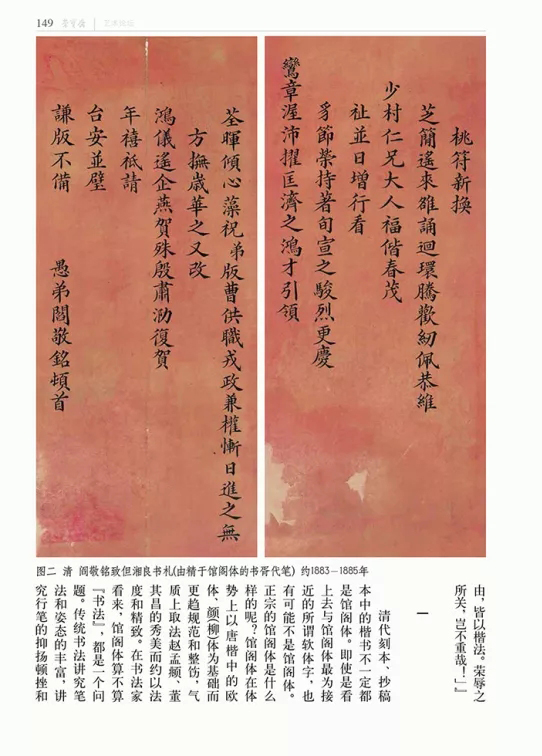 149
桃符新換
芝簡遙來雒誦迴環騰歡紉佩恭維
少村仁兄大人福偕春茂
祉並日增行看
豸節榮持著旬宣之駿烈更慶
鸞章渥沛擢匡濟之鴻才引領
荃暉傾心藻祝弟版曹供職戎政兼權慚日進之無
方撫歲華之又改
鴻儀遙企燕賀殊殷肅泐復賀
年禧祗請
台安並璧
謙版不備
愚弟閻敬銘頓首
图二 清 阎敬铭致但湘良书札(由精于馆阁体的书胥代笔) 约1883—1885年
由，皆以楷法。荣辱之
所关，岂不重哉！」』
一
清代刻本、抄稿
本中的楷书不一定都
是馆阁体。即使是看
上去与馆阁体最为接
近的所谓软体字，也
有可能不是馆阁体。
正宗的馆阁体是什么
样的呢？馆阁体在体
势上以唐楷中的欧
体、颜(柳)体为基础而
更趋规范和整饬，气
质上取法赵孟頫、董
其昌的秀美而约以法
度和精致。在书法家
看来，馆阁体算不算
『书法』，都是一个问
题。传统书法讲究笔
法和姿态的丰富，讲
究行笔的抑扬顿挫和